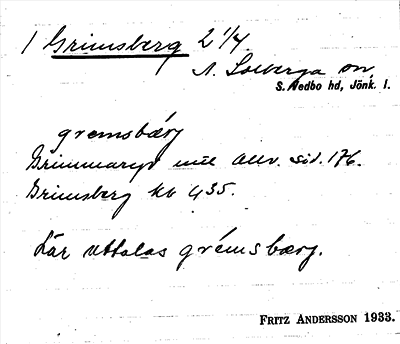 1 Grimsberg 2 1/4
N. Solberga sn,
S. Vedbo hd, Jönk. l.
gremsbærj
Grimmaryd mul Allv. sid. 176.
Grimsberg kb 435.
Lär uttalas grémsbærj.
FRITZ ANDERSSON 1933.